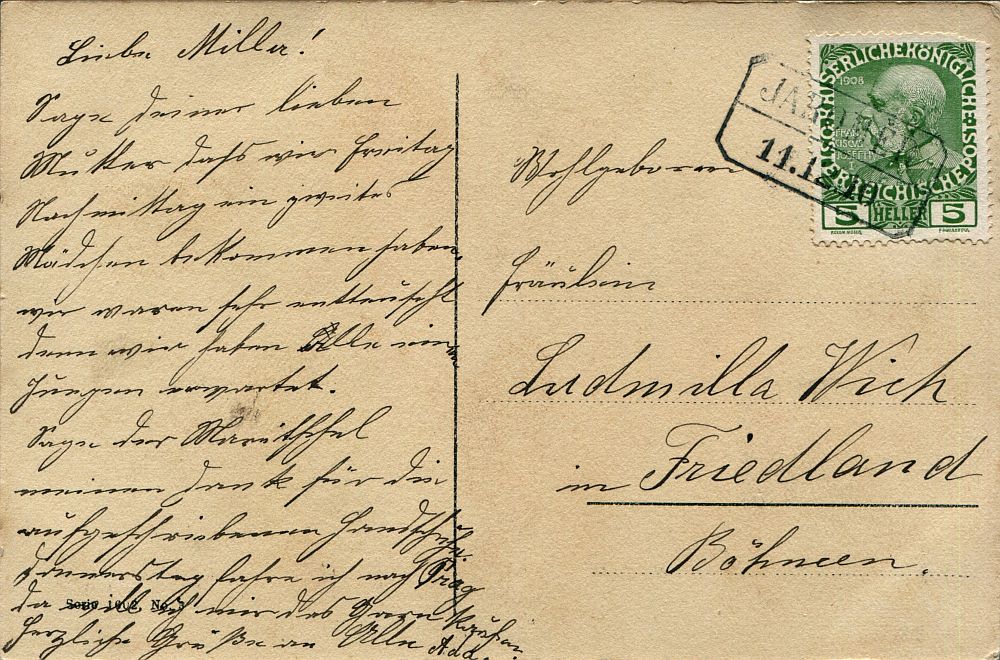 Liebe Milla!
Sage deiner lieben
Mutter dass wir Freitag
Nachmittag ein zweites
Mädchen bekommen haben,
wir waren sehr entteuscht
denn wir haben Alle ein
Jungen erwartet.
Sage der
meinen Dank für die
aufgeschriebenen Handschuhe
Donnerstag fahre ich nach Prag
da will ich mir das Garn kaufen
Herzliche Grüße an Alle
Serie 1002, No. 5
Wohlgeboren
Fräulein
Ludmilla Wich
in Friedland
Böhmen.
11.12.10
KAISERLICHE KÖNIGLICHE ÖSTERREICHISCHE POST
1908
FRAN
CISCUS
JOSEPH I
5 HELLER 5